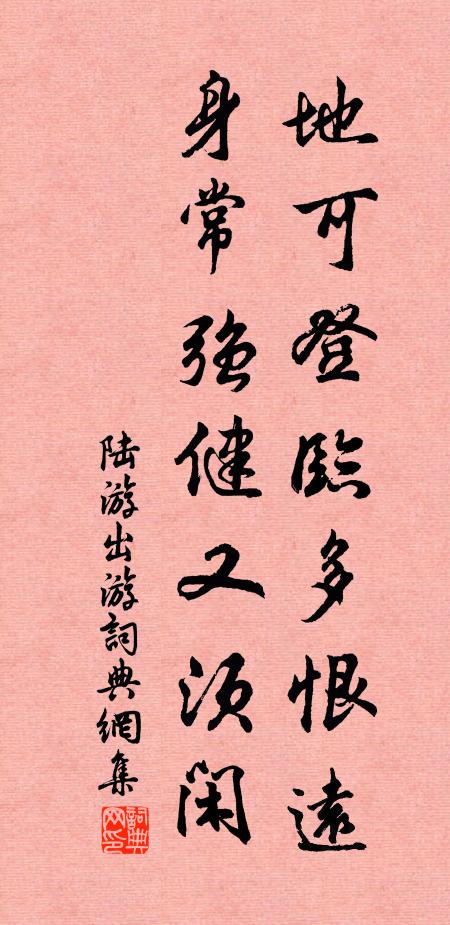 地可登臨多恨遠
身常強健又須閑
陆游出游詞典網集
詞典网印